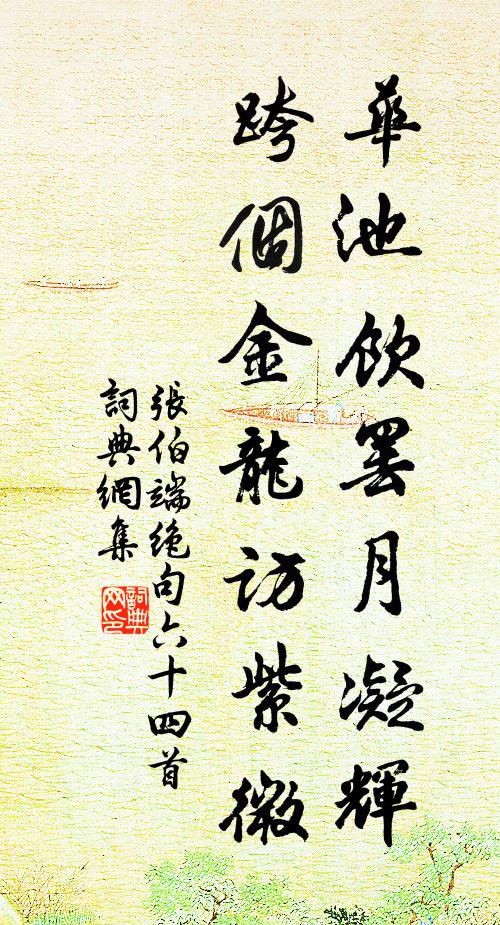 華池飲罷月凝輝
跨個金龍訪紫微
張伯端絶句六十四首
詞典網集
詞典網印